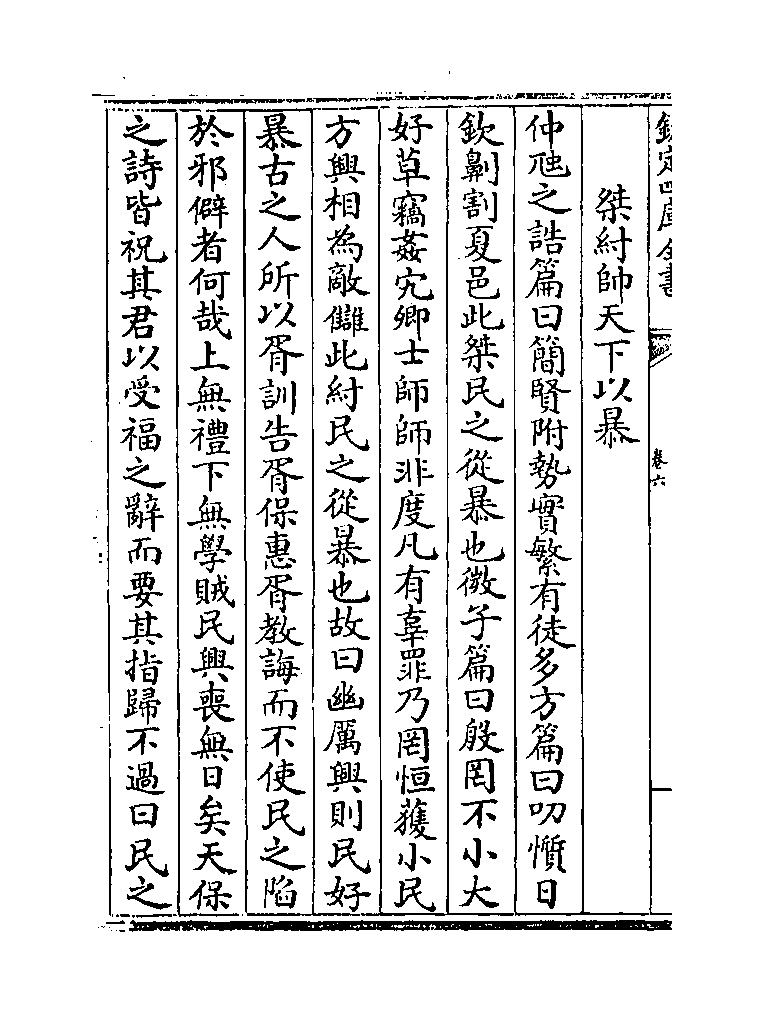 欽定四庫全書
卷六
桀紂帥天下以暴
仲虺之誥篇曰簡賢附勢實繁有徒多方篇曰叨懫日
欽劓割夏邑此桀民之從暴也微子篇曰殷罔不小大
好草竊姦宄卿士師師非度凡有辜罪乃罔恒獲小民
方興相為敵讎此紂民之從暴也故曰幽厲興則民好
暴古之人所以胥訓告胥保惠胥教誨而不使民之陷
於邪僻者何哉上無禮下無學賊民興喪無日矣天保
之詩皆祝其君以受福之辭而要其指歸不過曰民之